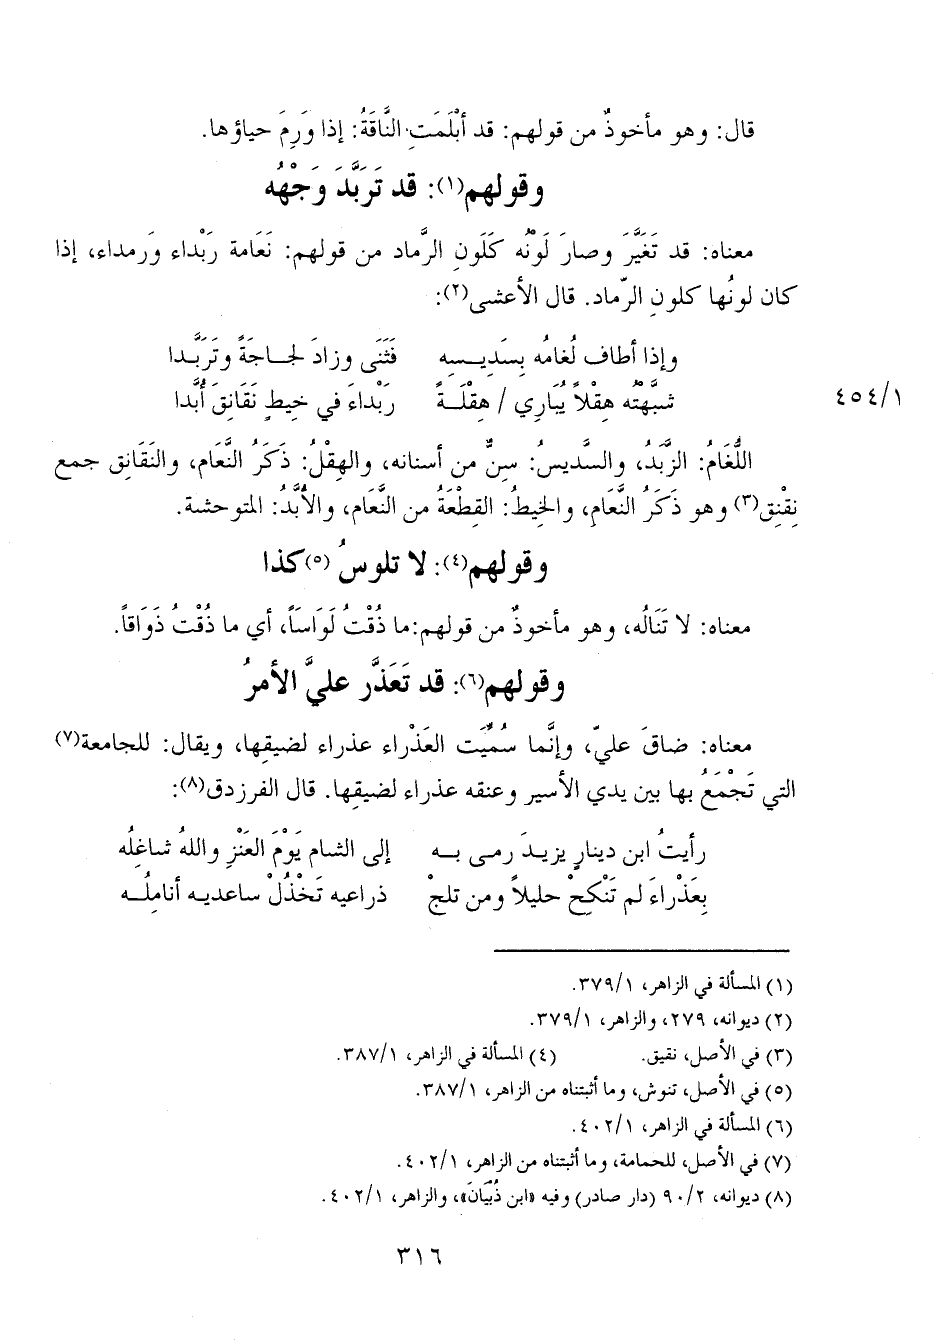 قال: وهو مأخوذٌ من قولهم: قد أبْلَمَتِ النَّاقَةُ: إذا وَرِمَ حياؤها.
وقولهم(١): قد تَرَبَّدَ وَجْهُه
معناه: قد تَغَيَّرَ وصارَ لَوْنُه كَلَونِ الرَّماد من قولهم: نَعَامة رَبْداء ورَمداء، إذا
كان لونُها كلونِ الرّماد. قال الأعشى(٢):
وإذا أطاف لُغامُه بِسَدِيسِه فَثَنَى وزادَ لجاجَةً وتَرَبَّدا
شبَّهْتُه هِقْلاً يُبَارِي / هِقْلَةً رَبْداءَ في خيطٍ نَقَانِقَ أُبَّدا
٤٥٤/١
اللُّغَامُ: الزَّبَدُ، والسَّديسُ: سِنٌّ من أسنانه، والهِقْلُ: ذَكَرُ النَّعام، والنَقَانِق جمع
نِقْنِق(٣) وهو ذَكَرُ النَّعَامِ، والخيطُ: القِطْعَةُ من النَّعَام، والأُبَّدُ: المتوحشة.
وقولهم(٤): لا تلوسُ (٥)كذا
معناه: لا تَنَالُه، وهو مأخوذٌ من قولهم:ما ذُقْتُ لَوَاسَاً، أي ما ذُقْتُ ذَوَاقاً.
وقولهم(٦): قد تَعَذَّر عليَّ الأمرُ
معناه: ضاقَ عليّ، وإنَّما سُمِّيَت العَذْراء عذراء لضيقِها، ويقال: للجامعة(٧)
التي تَجْمَعُ بها بين يدي الأسير وعنقه عذراء لضيقِها. قال الفرزدق(٨):
رأيتُ ابن دينارٍ يزيدَ رمى به إلى الشام يَوْمَ العَنْزِ واللهُ شاغِلُه
بِعَذْراءَ لم تَنْكِحْ حليلاً ومن تلجْ ذراعيه تَخْذُلْ ساعديه أنامِلُه
(١) المسألة في الزاهر، ٣٧٩/١.
(٢) ديوانه، ٢٧٩، والزاهر، ٣٧٩/١.
(٣) في الأصل، نقيق. (٤) المسألة في الزاهر، ٣٨٧/١.
(٥) في الأصل، تنوش، وما أثبتناه من الزاهر، ٣٨٧/١.
(٦) المسألة في الزاهر، ٤٠٢/١.
(٧) في الأصل، للحمامة، وما أثبتناه من الزاهر، ٤٠٢/١.
(٨) ديوانه، ٩٠/٢ (دار صادر) وفيه «ابن ذُبْيَانَ»، والزاهر، ٤٠٢/١.
٣١٦